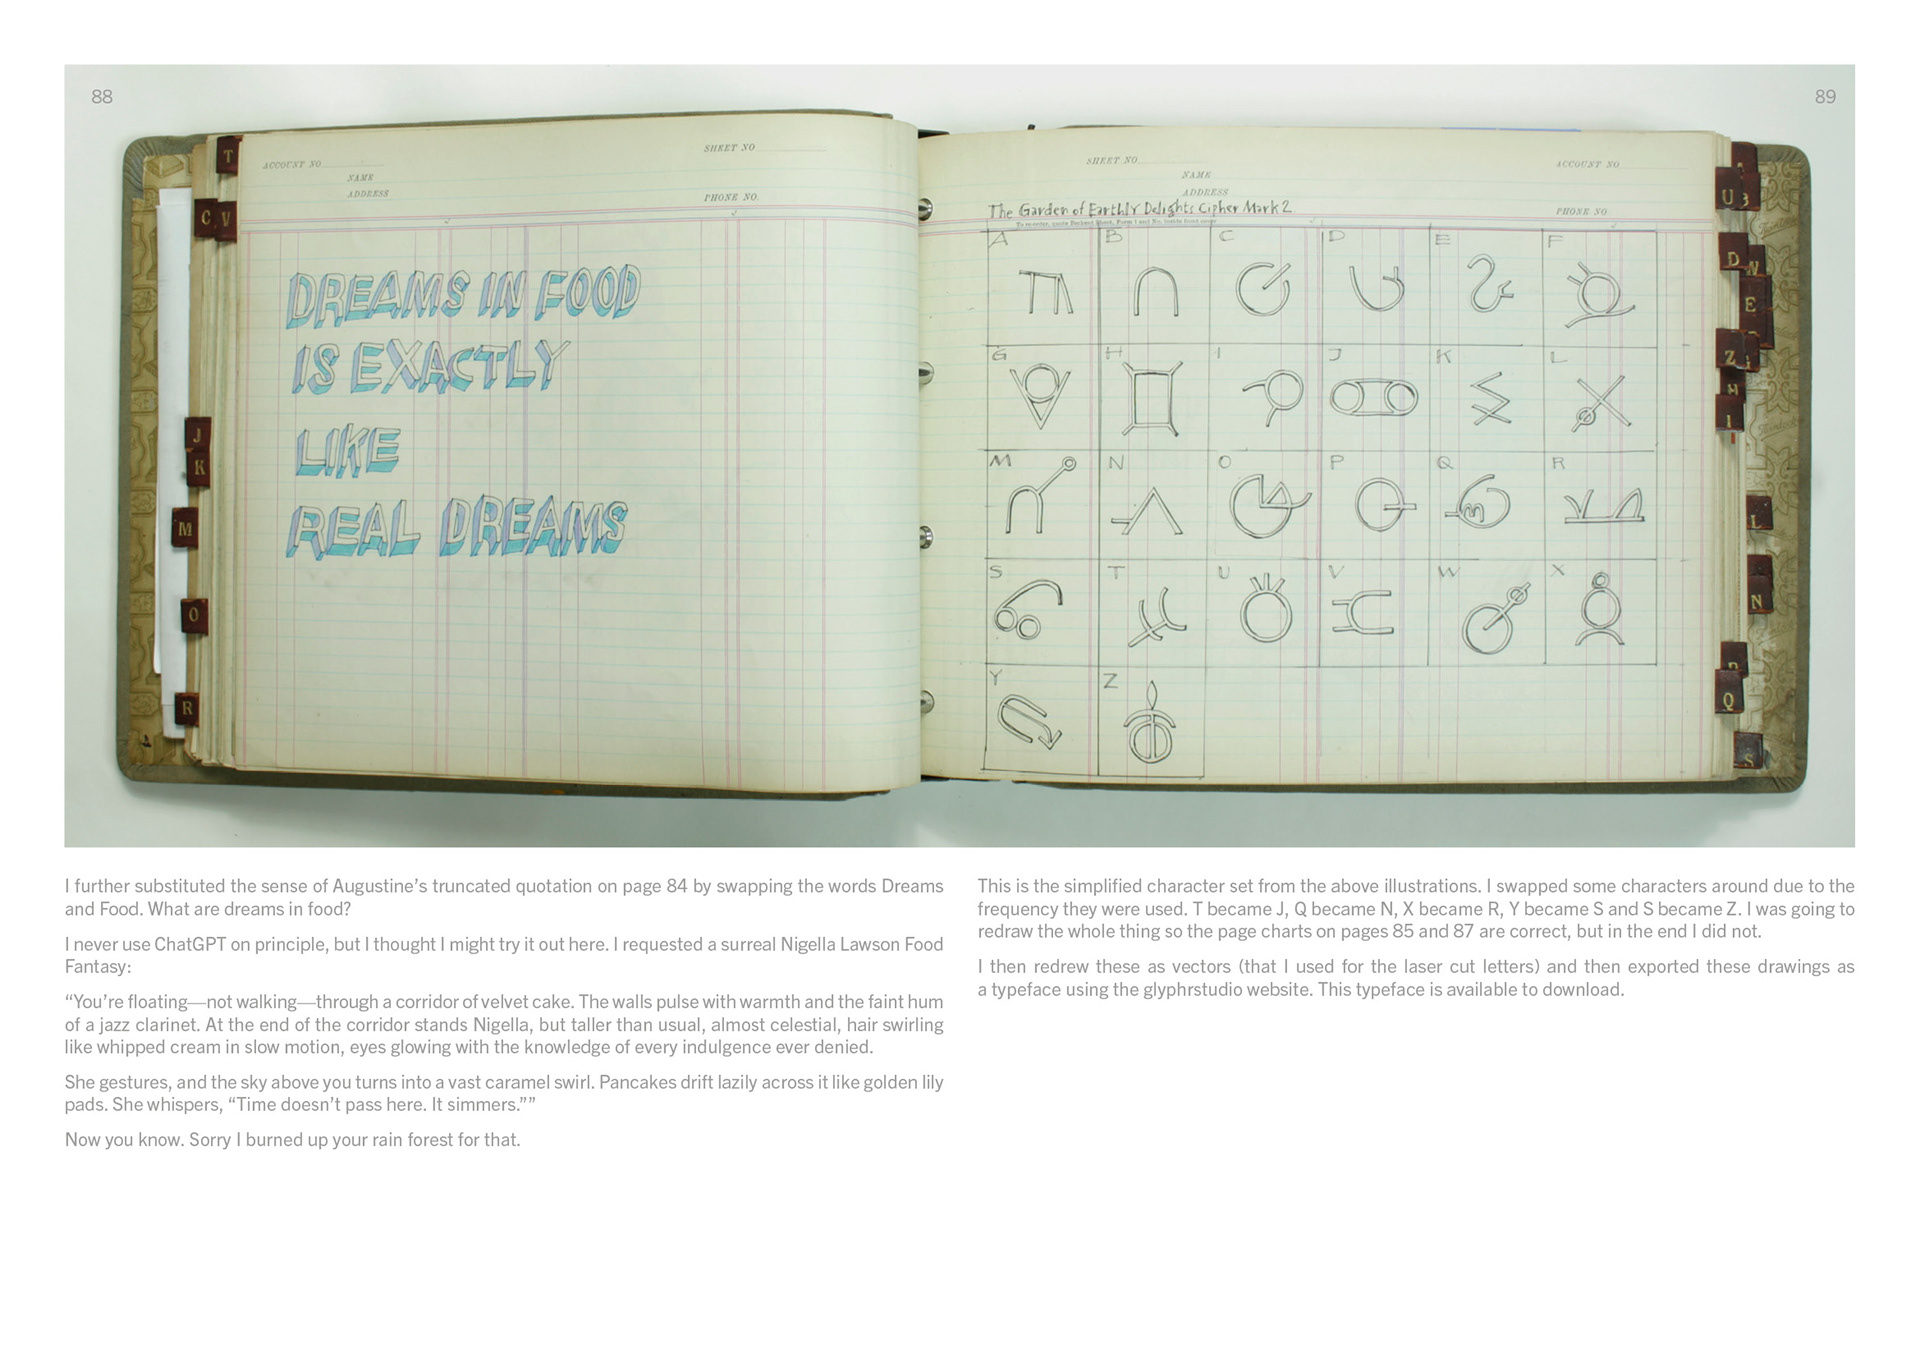 88
89
T
C V
J
K
M
O
R
ACCOUNT NO
SHEET NO
NAME
ADDRESS
PHONE NO.
DREAMS IN FOOD
IS EXACTLY
LIKE
REAL DREAMS
SHEET NO
ACCOUNT NO
NAME
ADDRESS
PHONE NO
The Garden of Earthly Delights Cipher Mark 2
A B C D E F
G H I J K L
M N O P Q R
S T U V W X
Y Z
U B
D W
E
Z
H
I
L
N
Q
S
I further substituted the sense of Augustine’s truncated quotation on page 84 by swapping the words Dreams
and Food. What are dreams in food?
I never use ChatGPT on principle, but I thought I might try it out here. I requested a surreal Nigella Lawson Food
Fantasy:
“You’re floating—not walking—through a corridor of velvet cake. The walls pulse with warmth and the faint hum
of a jazz clarinet. At the end of the corridor stands Nigella, but taller than usual, almost celestial, hair swirling
like whipped cream in slow motion, eyes glowing with the knowledge of every indulgence ever denied.
She gestures, and the sky above you turns into a vast caramel swirl. Pancakes drift lazily across it like golden lily
pads. She whispers, “Time doesn’t pass here. It simmers.””
Now you know. Sorry I burned up your rain forest for that.
This is the simplified character set from the above illustrations. I swapped some characters around due to the
frequency they were used. T became J, Q became N, X became R, Y became S and S became Z. I was going to
redraw the whole thing so the page charts on pages 85 and 87 are correct, but in the end I did not.
I then redrew these as vectors (that I used for the laser cut letters) and then exported these drawings as
a typeface using the glyphrstudio website. This typeface is available to download.